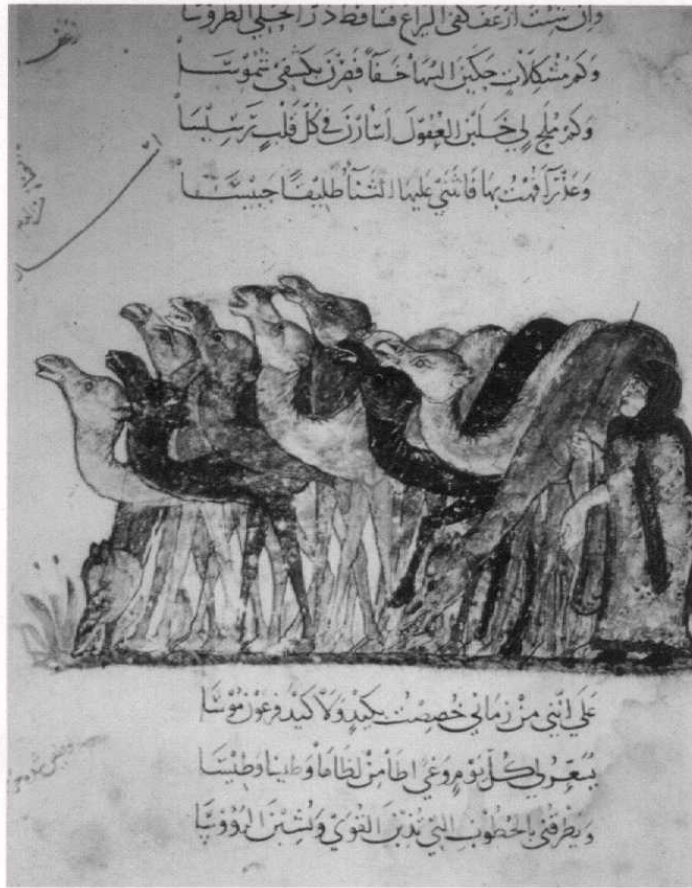 وان شئت ارعف كفي اليراع فساقط درا الطروسا
وكم مشكلات حكين السها خفا فصرن بكشفي شموسا
وكم ملح لي خلبن العقول اسارن في كل قلب رسيسا
وعذرا فهت بها فانثنى عليها الثنا طليقا حبيسا
على انني من زماني خصصت بكيد ولا كيد فرعون موسى
يسعر لي كل يوم وغى اطا من لظاها وطيسا وطيسا
ويطرقني بالخطوب التي يذبن القوي ويشبن الرؤوسا